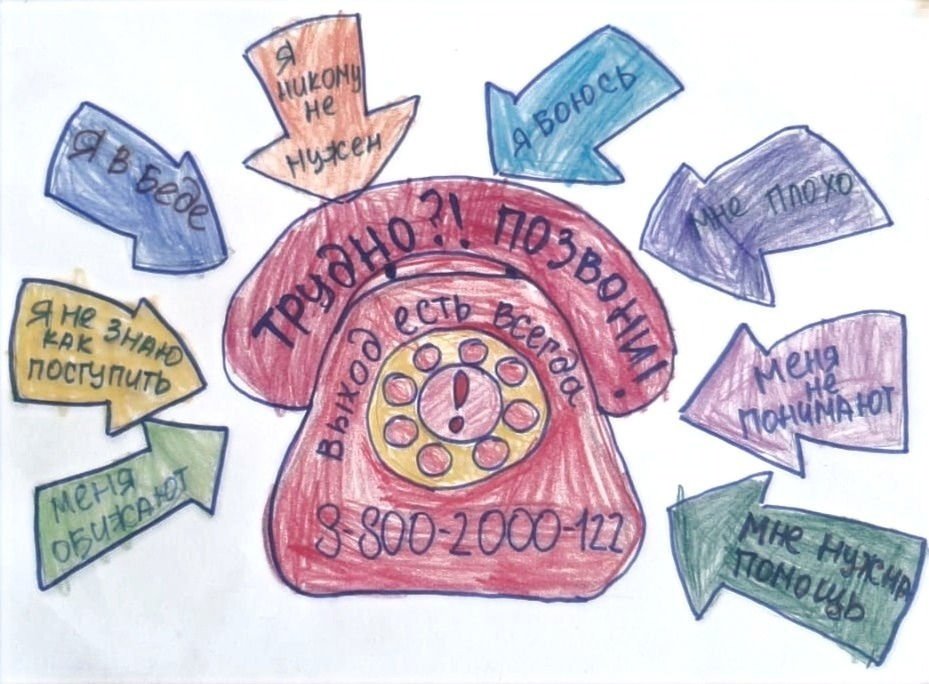 Я
никому
не
нужен
Я боюсь
Я в беде
мне плохо
Трудно?! Позвони!
выход есть всегда
!
Я не знаю
как
поступить
меня
не
понимают
меня
обижают
8-800-2000-122
мне нужна
помощь